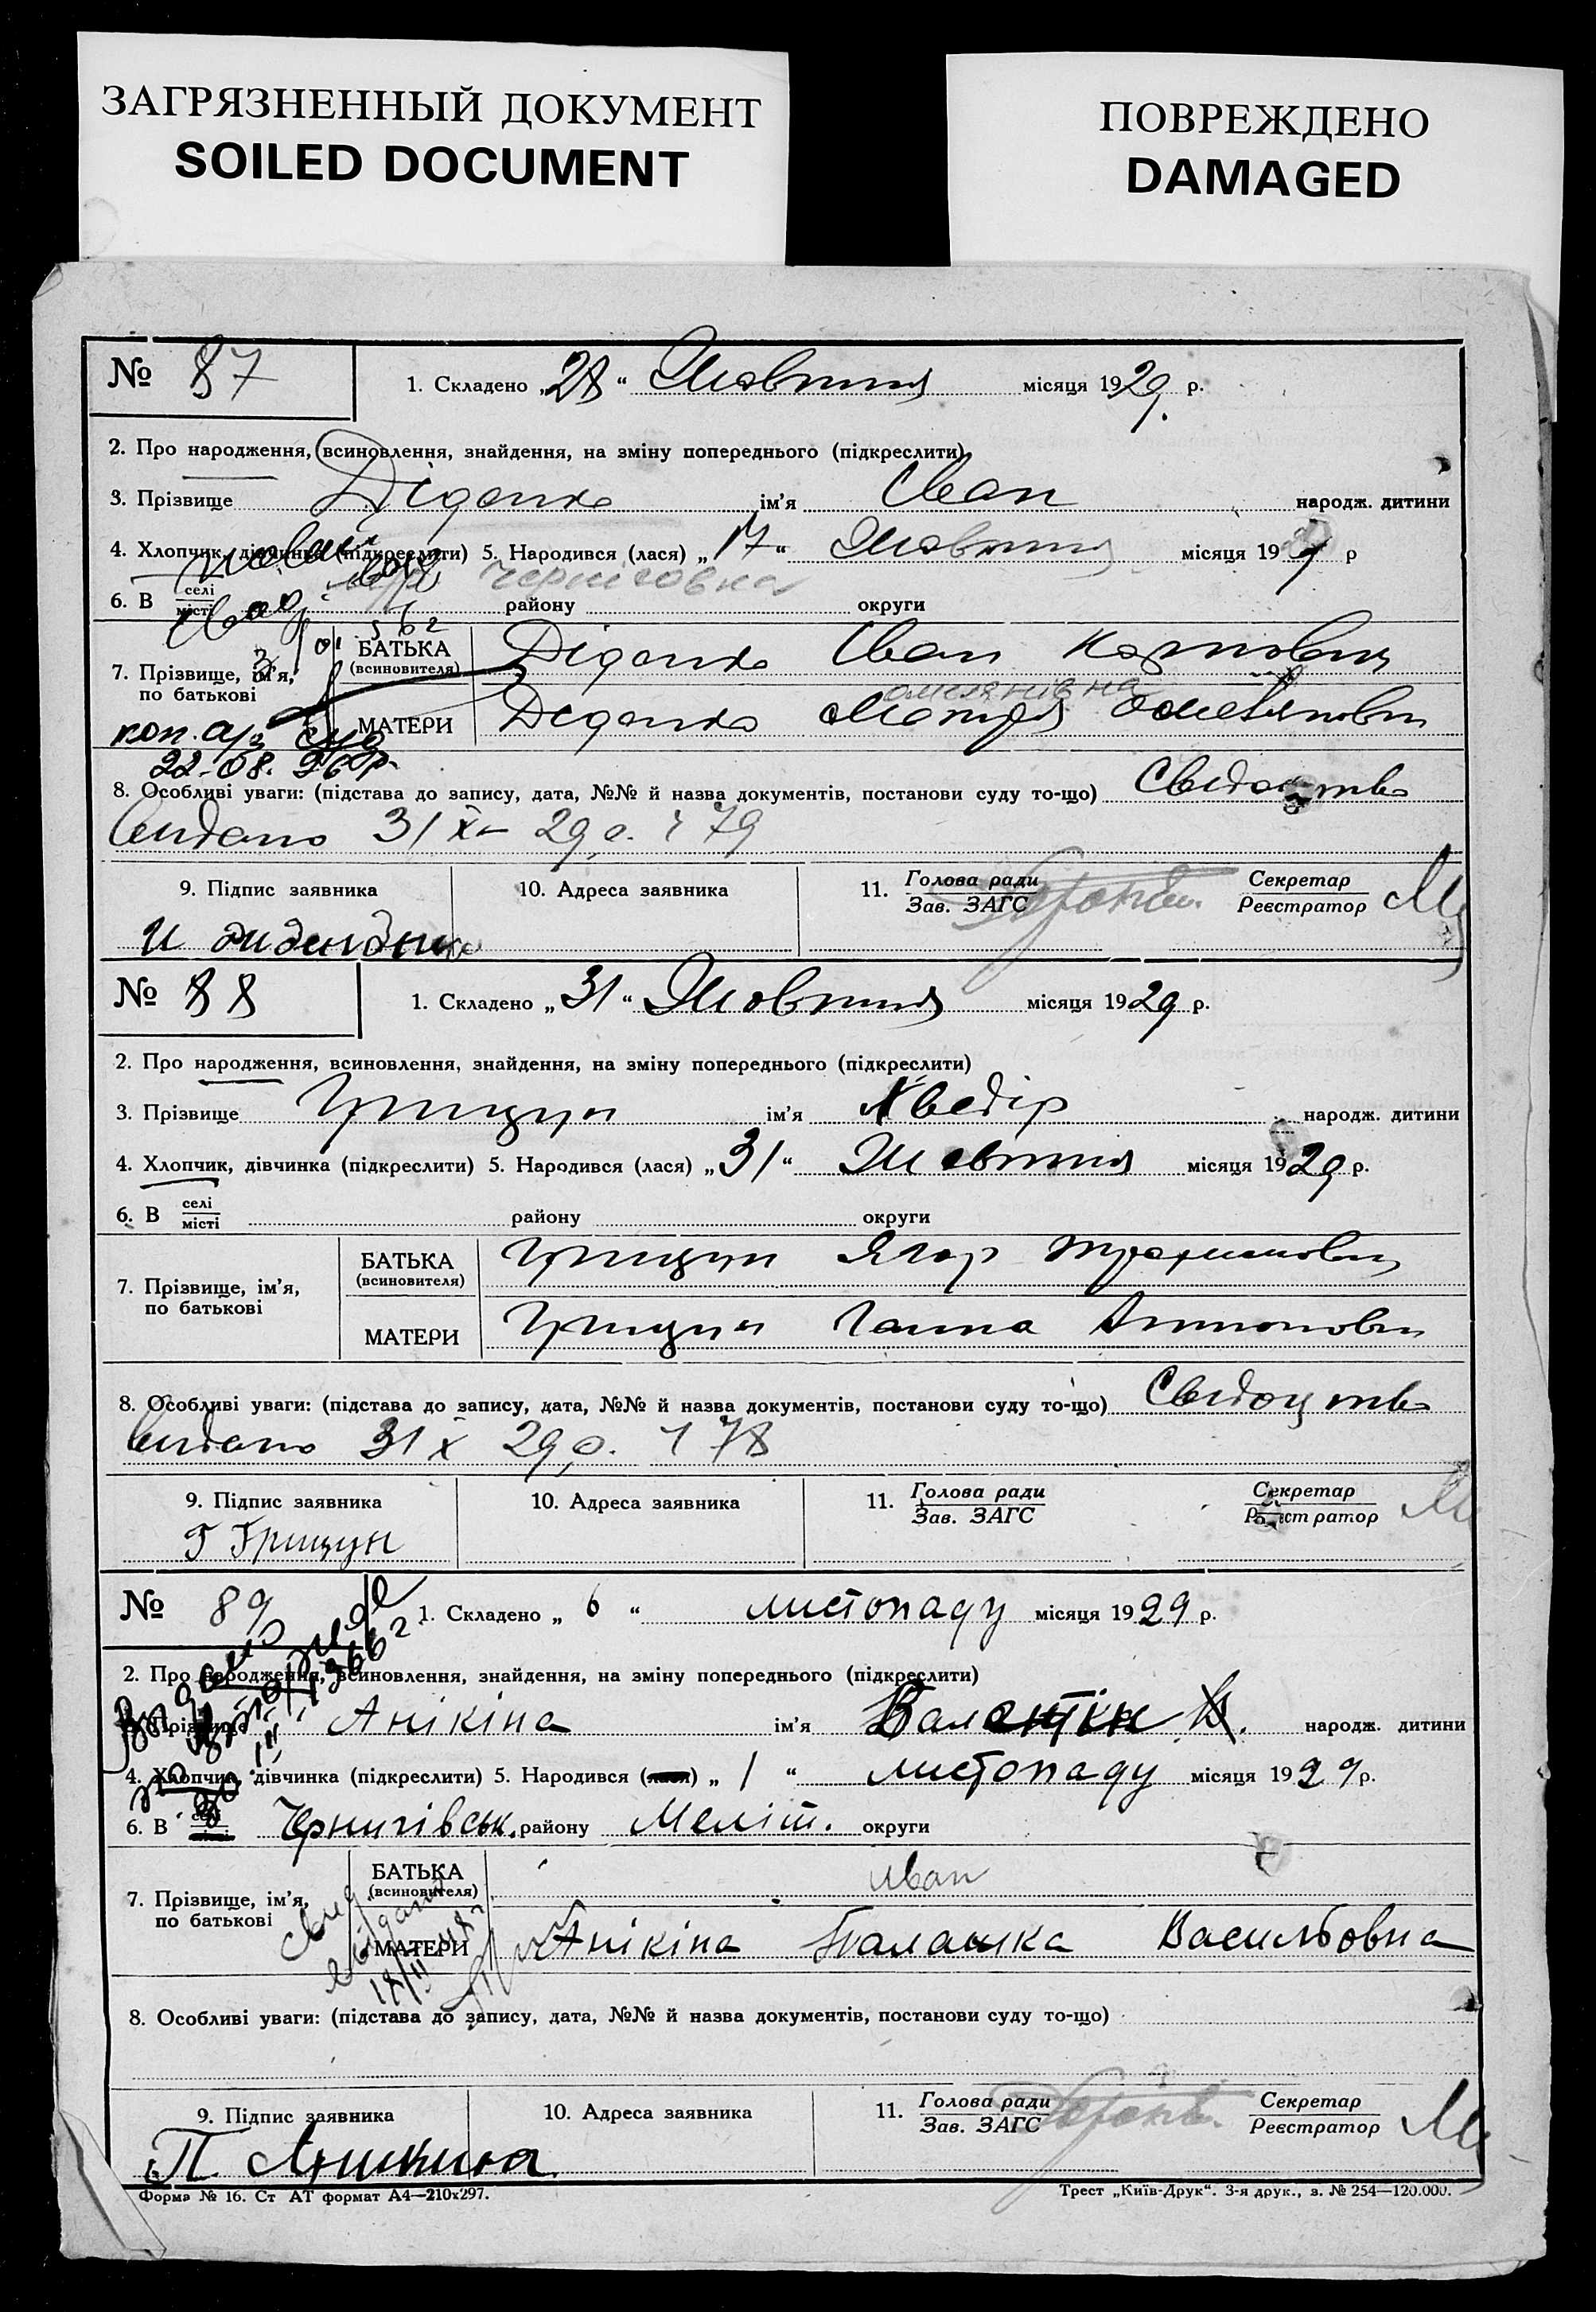 ЗАГРЯЗНЕННЫЙ ДОКУМЕНТ
SOILED DOCUMENT
ПОВРЕЖДЕНО
DAMAGED
№ 87
1. Складено „28“ Жовтня місяця 1929 р.
2. Про народження, всиновлення, знайдення, на зміну попереднього (підкреслити)
3. Прізвище Діденко ім'я Іван народж. дитини
4. Хлопчик, дівчинка (підкреслити) 5. Народився (лася) „17“ Жовтня місяця 1929 р
6. В селі місті району округи
7. Прізвище, ім'я, по батькові
БАТЬКА (всиновителя) Діденко Іван Карпович
омелянівна
МАТЕРИ Діденко Мотря
22-08.
8. Особливі уваги: (підстава до запису, дата, №№ й назва документів, постанови суду то-що) Свидоцтво
видано 31 X 29 р. 79
9. Підпис заявника
10. Адреса заявника
11. Голова ради Зав. ЗАГС
Секретар Реєстратор
№ 88
1. Складено „31“ Жовтня місяця 1929 р.
2. Про народження, всиновлення, знайдення, на зміну попереднього (підкреслити)
3. Прізвище Грищун ім'я Хведір народж. дитини
4. Хлопчик, дівчинка (підкреслити) 5. Народився (лася) „31“ Жовтня місяця 1929 р.
6. В селі місті району округи
7. Прізвище, ім'я, по батькові
БАТЬКА (всиновителя) Грищун Ягор
МАТЕРИ Грищун Ганна Антоновн
8. Особливі уваги: (підстава до запису, дата, №№ й назва документів, постанови суду то-що) Свидоцтво
видано 31 X 29 р. 78
9. Підпис заявника
Г Грищун
10. Адреса заявника
11. Голова ради Зав. ЗАГС
Секретар Реєстратор
№ 89
1. Складено „ 6 “ листопаду місяця 1929 р.
2. Про народження, всиновлення, знайдення, на зміну попереднього (підкреслити)
3. Прізвище Анікіна ім'я Валентін В. народж. дитини
4. Хлопчик, дівчинка (підкреслити) 5. Народився (лася) „ 1 “ листопаду місяця 1929 р.
6. В селі Чернигівськ. району Меліт. округи
7. Прізвище, ім'я, по батькові
БАТЬКА (всиновителя) Иван
МАТЕРИ Анікіна Палашка Васильовна
8. Особливі уваги: (підстава до запису, дата, №№ й назва документів, постанови суду то-що)
9. Підпис заявника
П. Аникина
10. Адреса заявника
11. Голова ради Зав. ЗАГС
Секретар Реєстратор
Форма № 16. Ст АТ формат А4—210х297.
Трест „Київ-Друк“. 3-я друк., з. № 254—120.000.